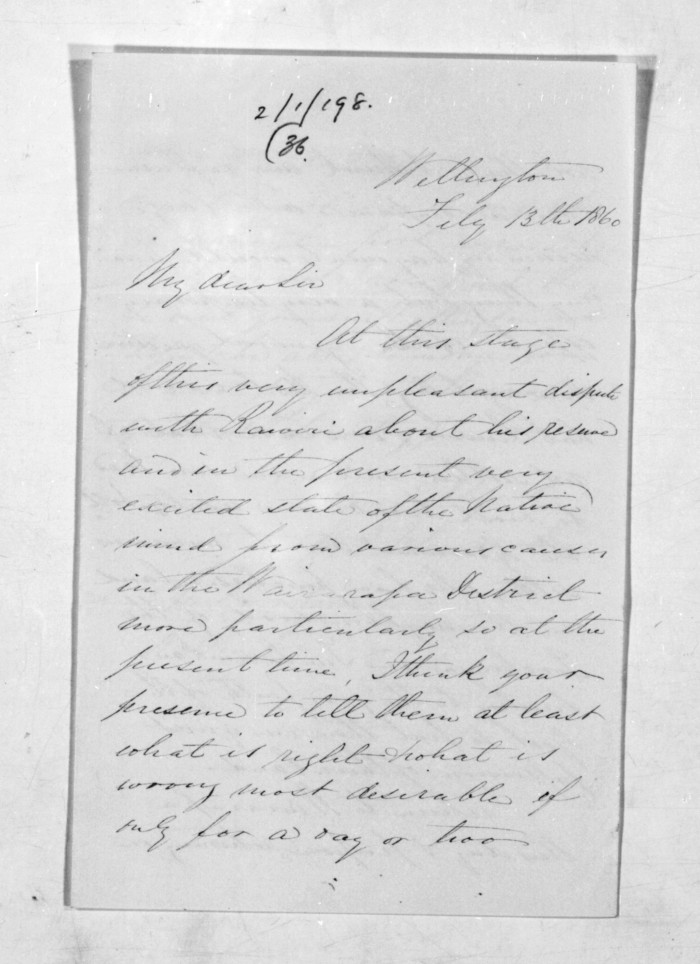 2/1/198.
(36.
Wellington
Feby 13th 1860
My dear Sir
At this stage
of this very unpleasant dispute
with Rawiri about his reserve
and in the present very
excited state of the Native
mind from various causes
in the Wairarapa District
more particularly so at the
present time, I think your
presence to tell them at least
what is right & what is
wrong most desirable if
only for a day or two